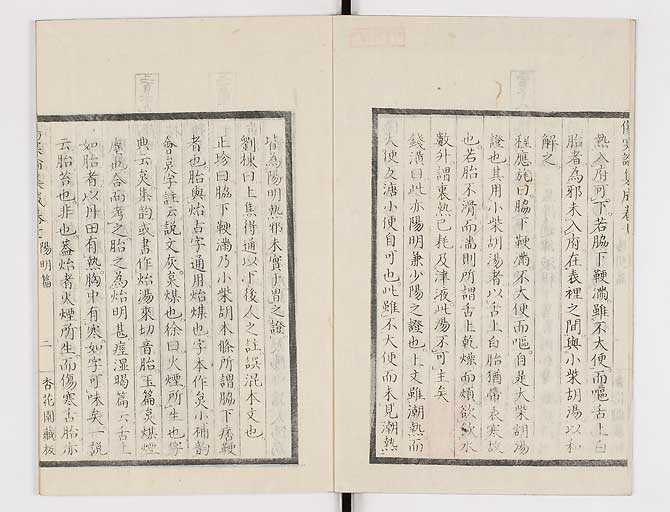 熱入府可下若脇下鞕滿雖不大便而嘔舌上白
胎者為邪未入府在表裡之間與小柴胡湯以和
解之
程應旄曰脇下鞕滿不大便而嘔自是大柴胡湯
證也其用小柴胡湯者以舌上白胎猶帶表寒故
也若胎不滑而濇則所謂舌上乾燥而煩欲飲水
數升謂裏熱已耗及津液此湯不可主矣
錢潢曰此亦陽明兼少陽之證也上文雖潮熱而
大便反溏小便自可也此雖不大便而未見潮熱
皆為陽明熱邪未實于胃之證
劉棟曰上焦得通以下後人之註誤混本文也
正珍曰脇下鞕滿乃小柴胡本條所謂脇下痞鞕
者也胎與炲古字通用炲煤也字本作炱小補韵
會炱字註云說文灰炱煤也徐曰火煙所生也字
典云炱集韵或書作炲湯來切音胎玉篇炱煤煙
塵也合而考之胎之為炲明甚痙湿暍篇云舌上
如胎者以丹田有熱胸中有寒如字可味矣一說
云胎苔也非也蓋炲者火煙所生而傷寒舌胎亦
陽明篇
二
杏花園藏板